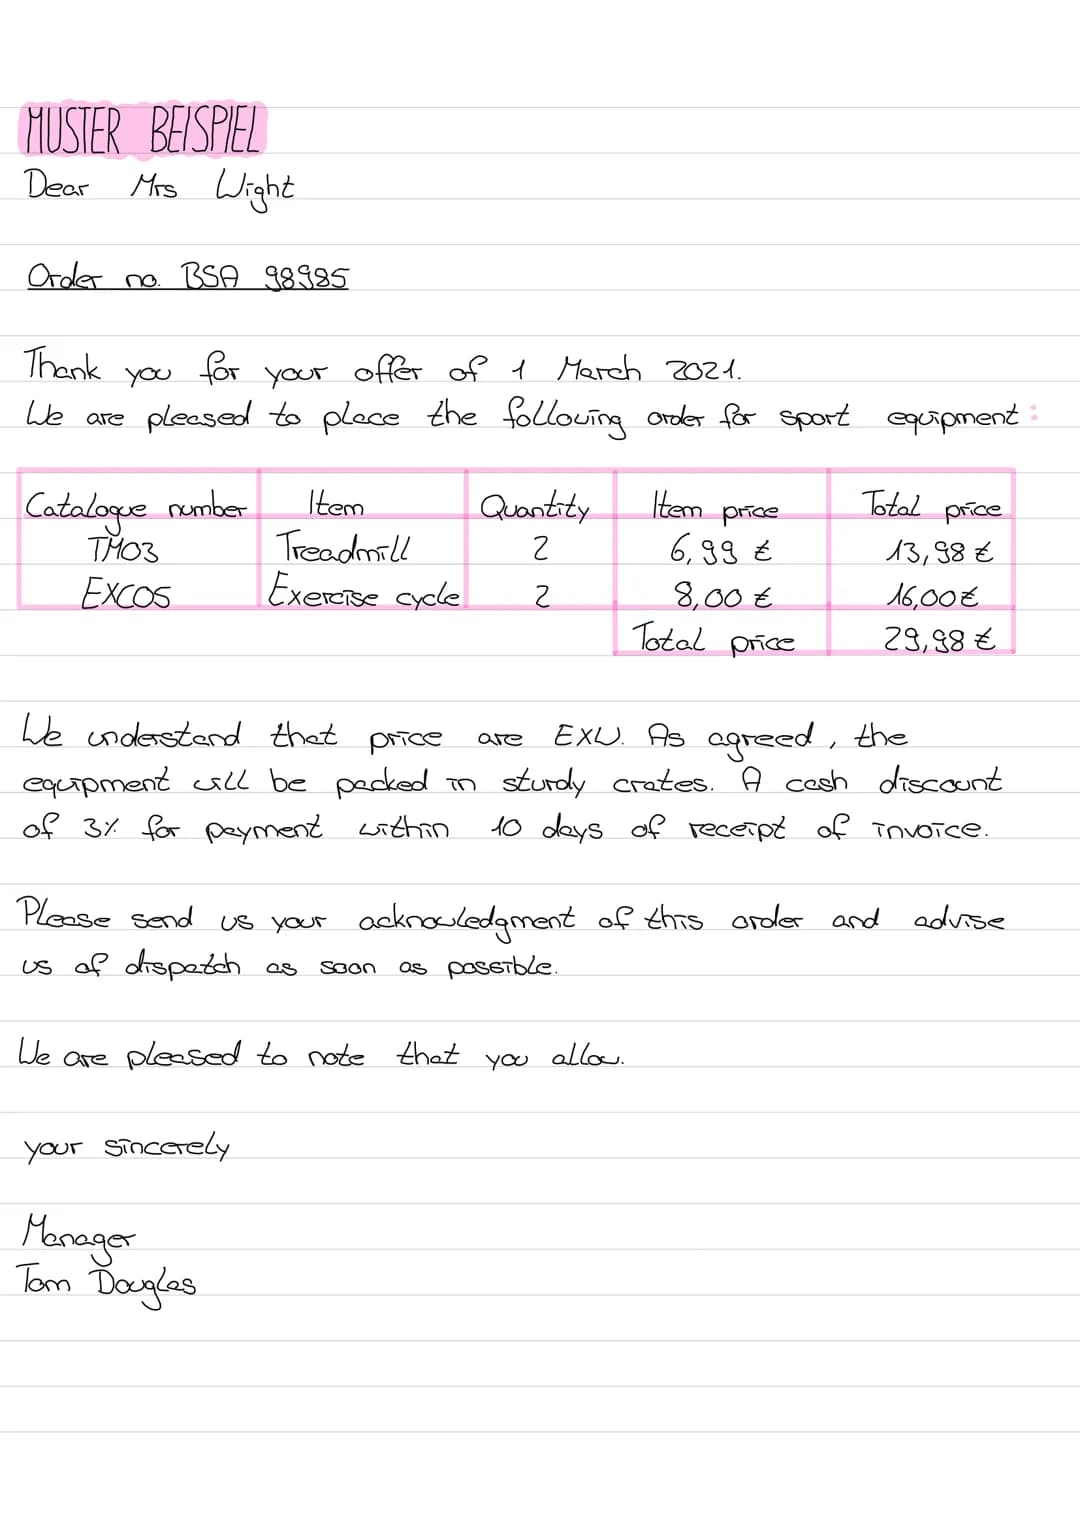 MUSTER BEISPIEL
Dear Mrs Wight
Order no. BSA 98985
Thank you for your offer of 1 March 2021.
We are pleased to place the following order for sport equipment:
Catalogue number Item Quantity Item price Total price
TM03 Treadmill 2 6,99 € 13,98 €
EXC05 Exercise cycle 2 8,00 € 16,00 €
Total price 29,98 €
We understand that price are EXW. As agreed, the
equipment will be packed in sturdy crates. A cash discount
of 3% for payment within 10 days of receipt of invoice.
Please send us your acknowledgment of this order and advise
us of dispatch as soon as possible.
We are pleased to note that you allow.
your sincerely
Manager
Tom Douglas